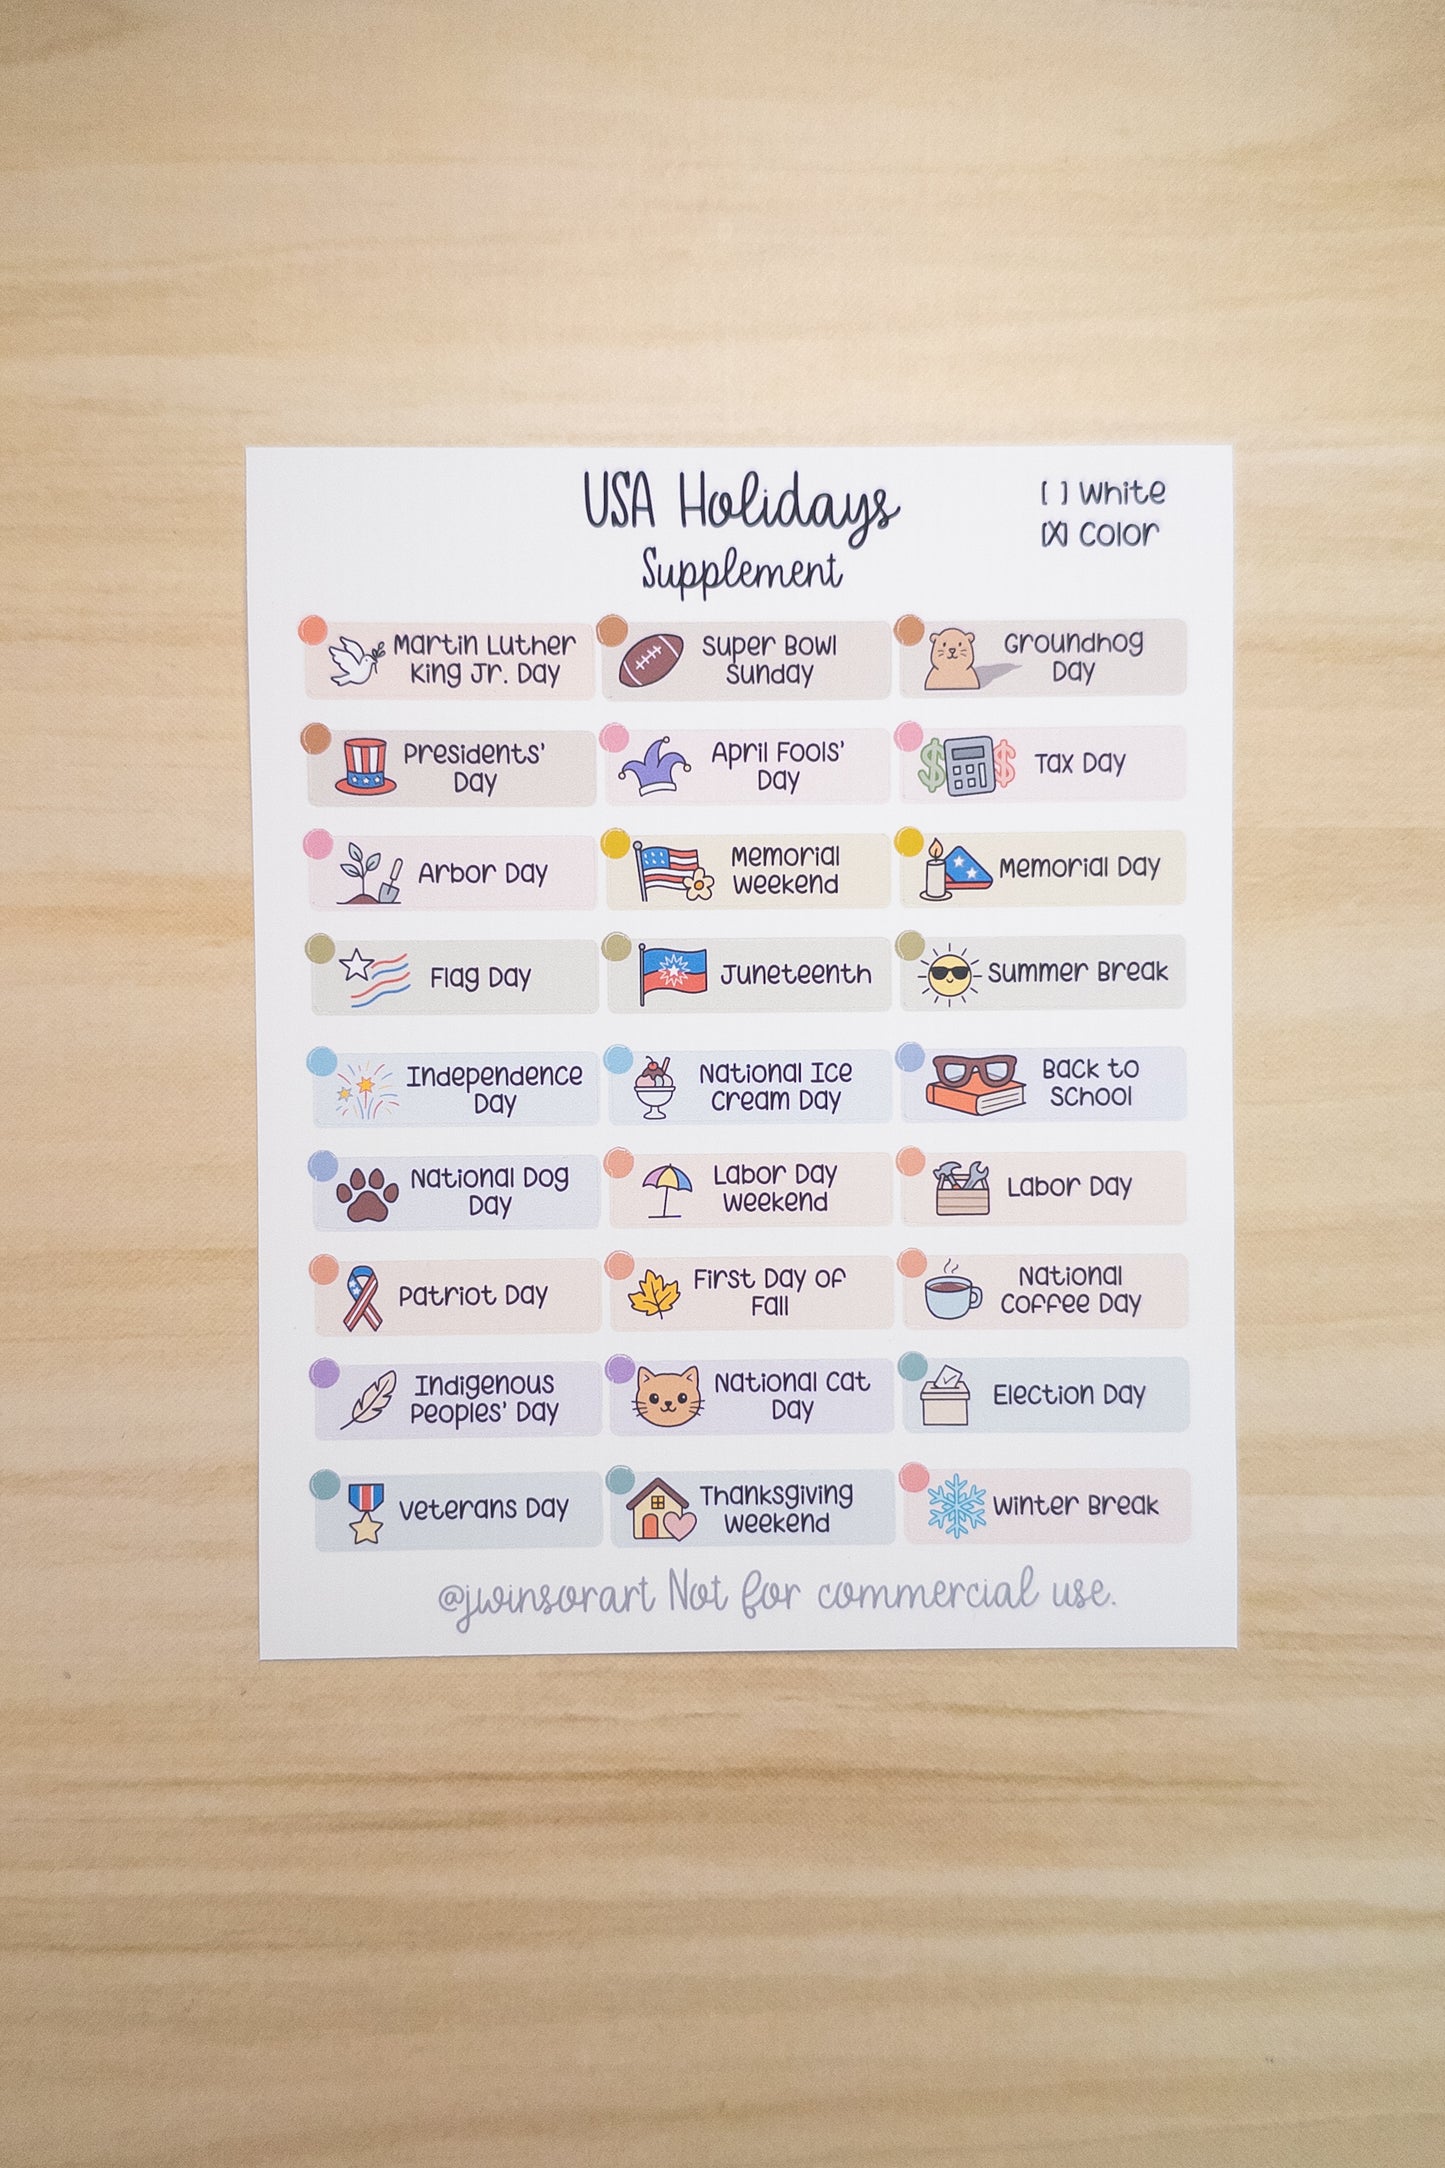 USA Holidays
Supplement
[ ] White
[X] Color
Martin Luther
King Jr. Day
Super Bowl
Sunday
Groundhog
Day
Presidents'
Day
April Fools'
Day
Tax Day
Arbor Day
Memorial
Weekend
Memorial Day
Flag Day
Juneteenth
Summer Break
Independence
Day
National Ice
Cream Day
Back to
School
National Dog
Day
Labor Day
Weekend
Labor Day
Patriot Day
First Day of
Fall
National
Coffee Day
Indigenous
Peoples' Day
National Cat
Day
Election Day
Veterans Day
Thanksgiving
Weekend
Winter Break
@jwinsorart Not for commercial use.